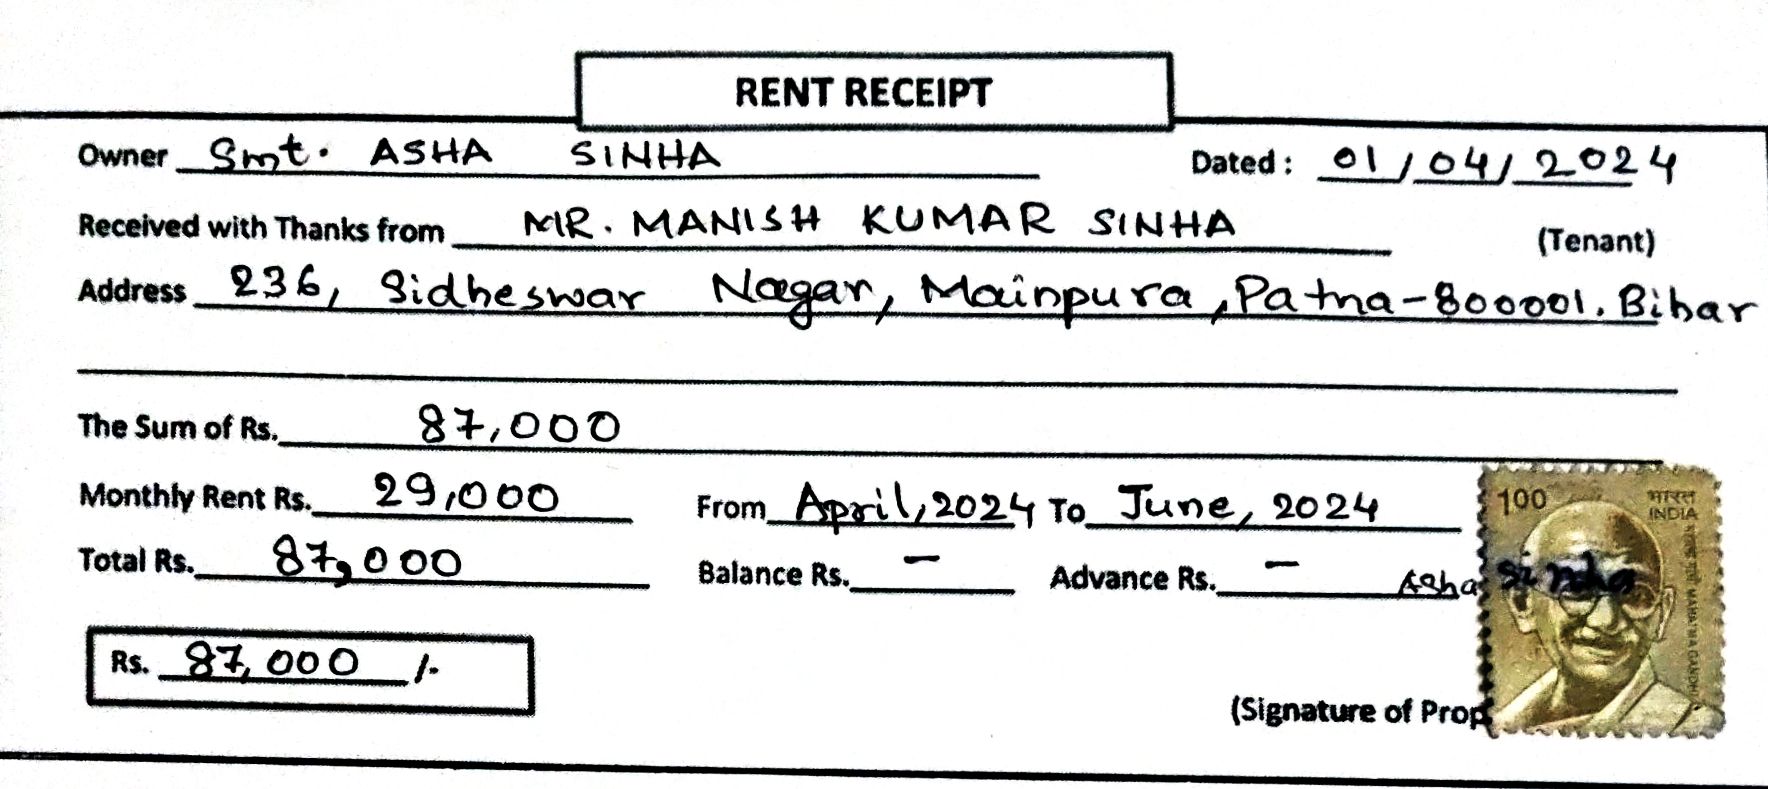 RENT RECEIPT
Owner Smt. ASHA SINHA Dated : 01/04/2024
Received with Thanks from MR. MANISH KUMAR SINHA (Tenant)
Address 236, Sidheswar Nagar, Mainpura, Patna-800001. Bihar
The Sum of Rs. 87,000
Monthly Rent Rs. 29,000 From April, 2024 To June, 2024
Total Rs. 87,000 Balance Rs. - Advance Rs. -
Asha Sinha
Rs. 87,000 /-
(Signature of Prop
100 भारत
INDIA
महात्मा गांधी MAHATMA GANDHI